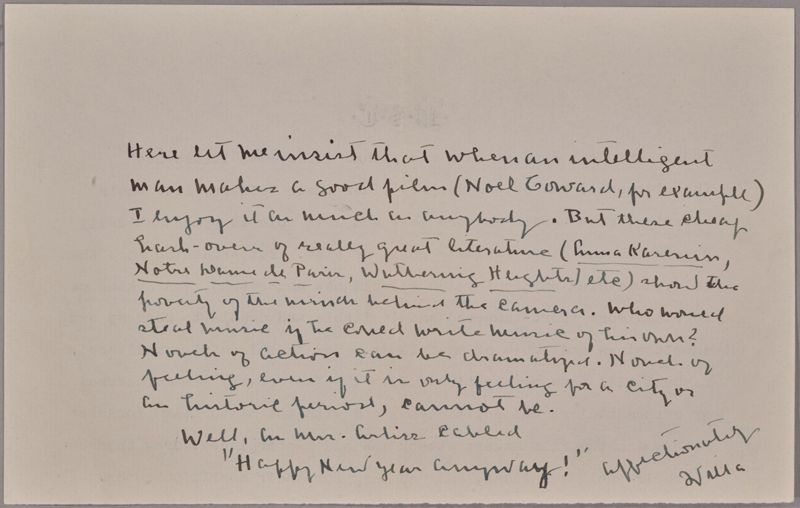 Here let me insist that when an intelligent
man makes a good film (Noel Coward, for example)
I enjoy it as much as anybody. But these cheap
hash-overs of really great literature (Anna Karenin,
Notre Dame de Paris, Wuthering Heights, etc) show the
poverty of the minds behind the camera. Who would
steal music if he could write music of his own?
Novels of action can be dramatized. Novels of
feeling, even if it is only feeling for a city or
an historic period, cannot be.
Well, as Mr. Arliss cabled
"Happy New Year anyway!" affectionately
Willa